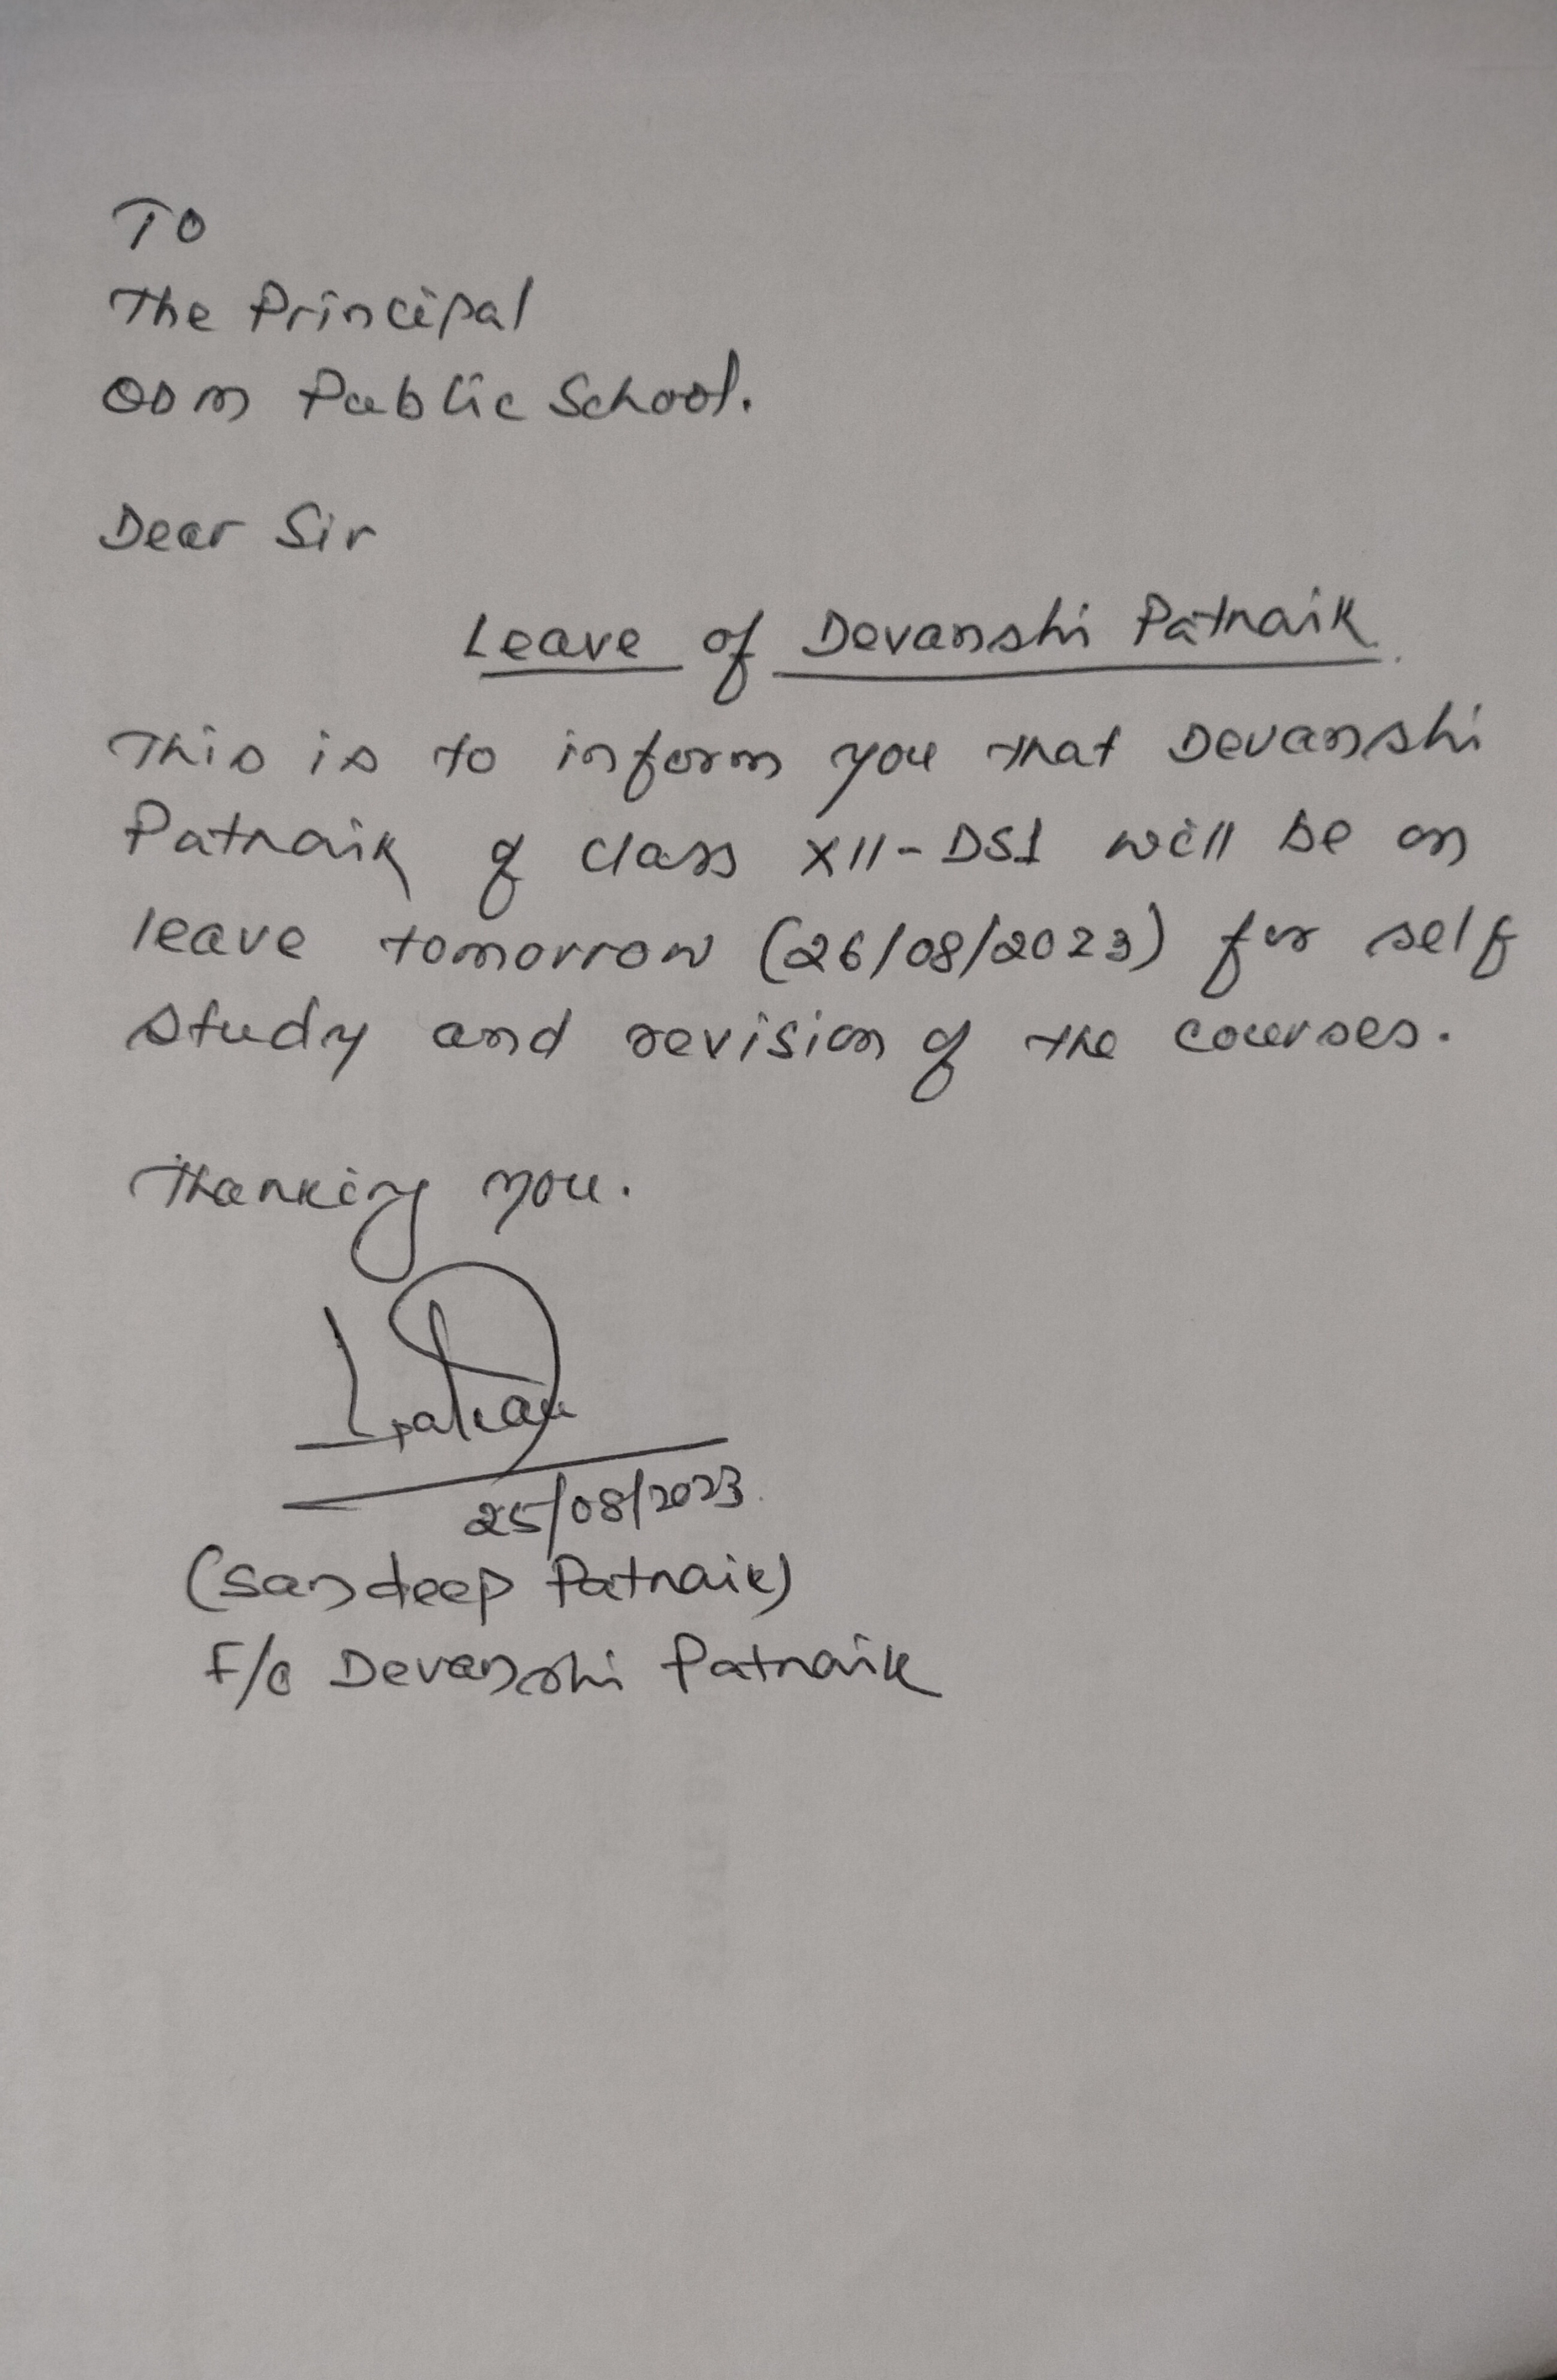 To
The Principal
ODM Public School.
Dear Sir
Leave of Devanshi Patnaik.
This is to inform you that Devanshi
Patnaik of class XII-DS1 will be on
leave tomorrow (26/08/2023) for self
study and revision of the courses.
Thanking you.
25/08/2023.
(Sandeep Patnaik)
F/o Devanshi Patnaik